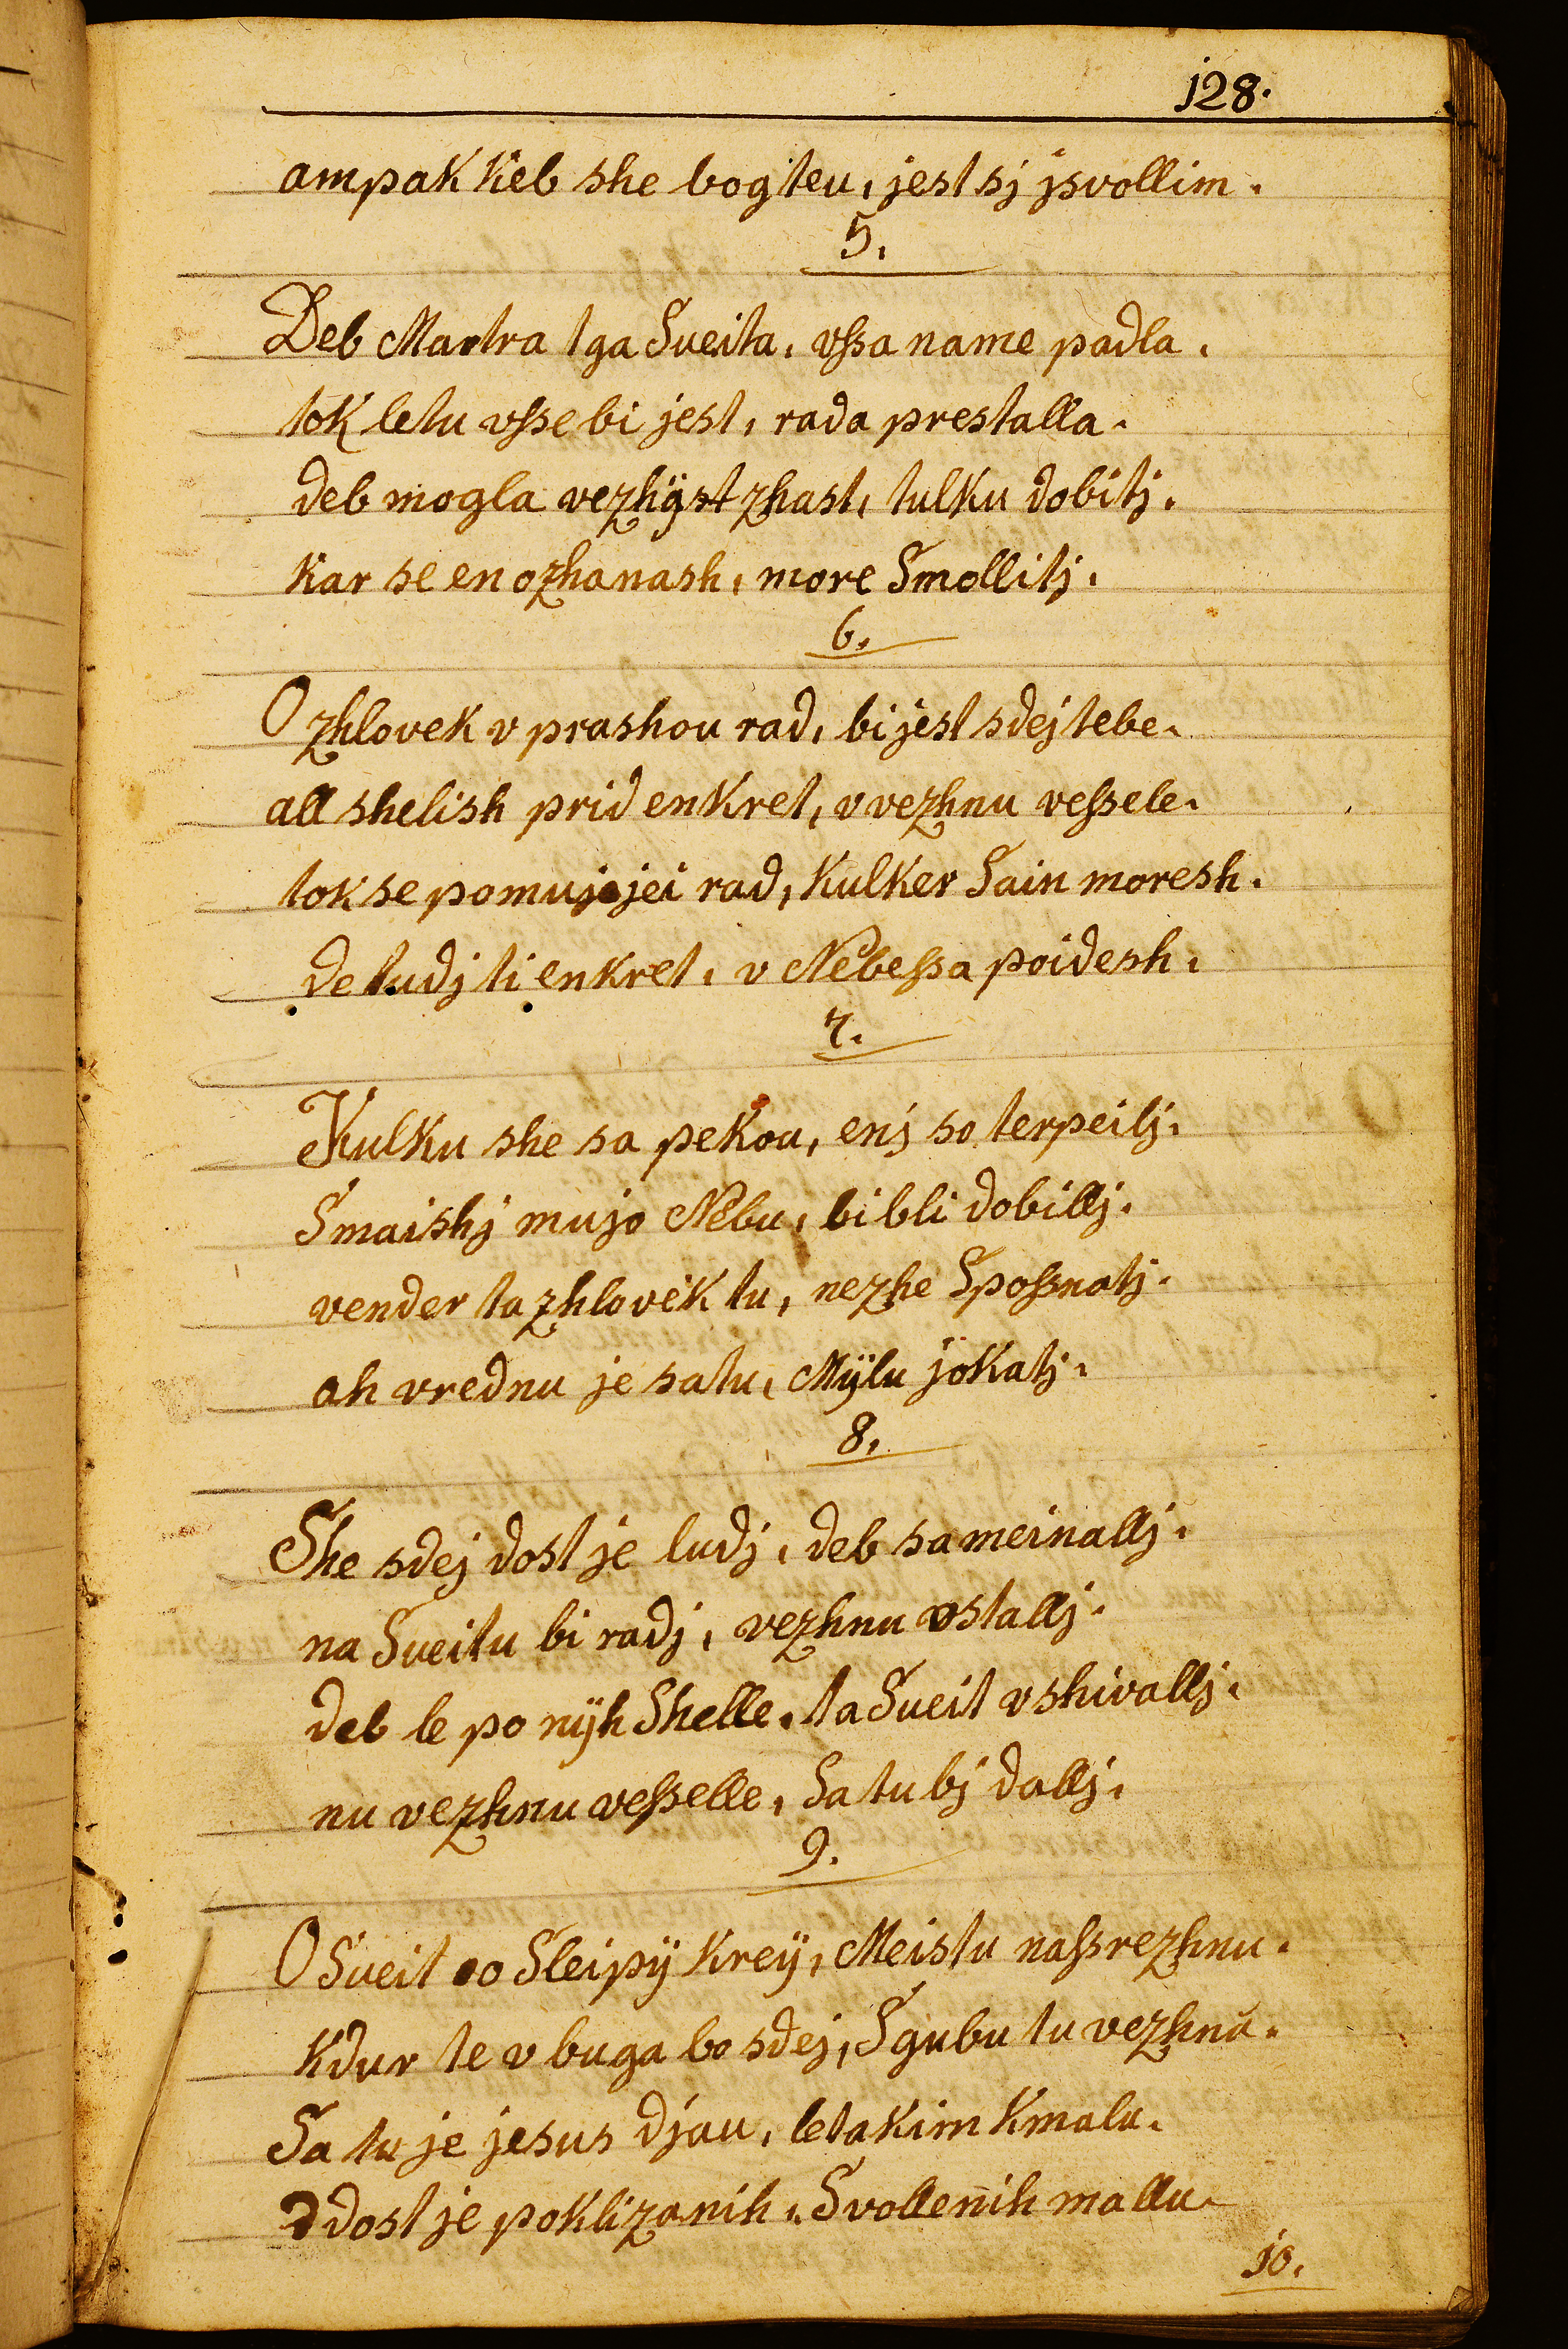 j28.
ampak keb she bogteu, jest sj jsvollim.
5.
Deb Martra tga Sueita, vßa name padla.
tok letu vßse bi jest, rada prestalla.
deb mogla vezhÿst zhast, tulku dobitj.
kar se en ozhanash, more Smollitj.
6.
O zhlovek v prashou rad, bi jest sdej tebe.
all shelish prid enkret, v vezhnu veßele.
tok se pomujo jei rad, kulker Sain moresh.
de tudj ti enkret, v Nebeßa poidesh.
7.
Kulku she sa pekou, enj so terpeilj.
Smaishj mujo Nebu, bi bli dobillj.
vender ta zhlovek tu, nezhe Spoßnatj.
ah vrednu je satu, Mÿlu jokatj.
8.
She sdej dost je ludj, deb sa meinallj.
na Sueitu bi radj, vezhnu ostallj.
deb le po nÿh Shelle, ta Sueit vshivallj.
nu vezhnu veßelle, Sa tu bj dallj.
9.
O Sueit oo Sleipÿ Kreÿ, Meistu naßrezhnu.
kdur te v buga bo sdej, Sgubu tu vezhnu.
Sa tu je jesus djau, letakim kmalu.
dost je poklizanih, Svollenih mallu.
jo.